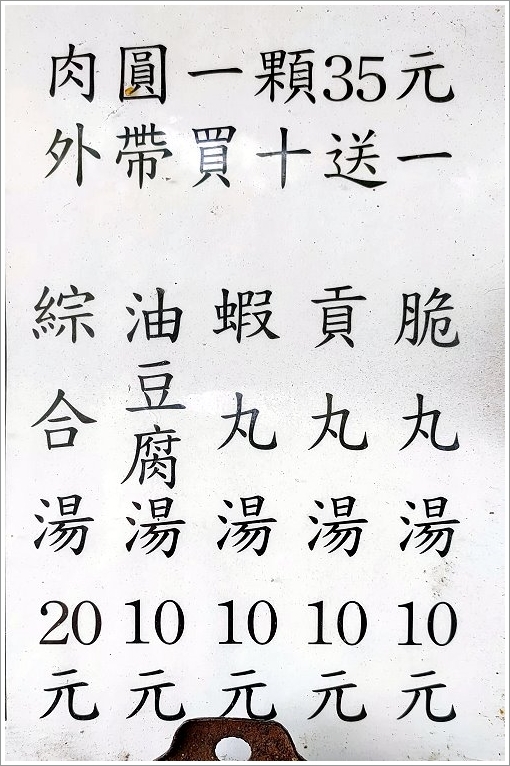 肉圓一顆35元
外帶買十送一
脆丸湯10元
貢丸湯10元
蝦丸湯10元
油豆腐湯10元
綜合湯20元